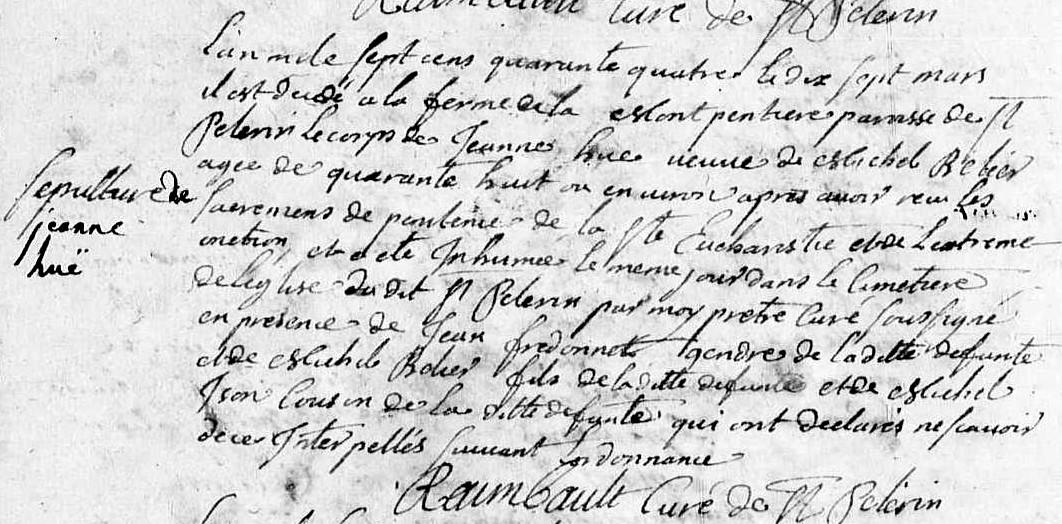 Raimbault Curé de St Pelerin
L'an mile sept cens quarante quatre le dix sept mars
il est decedé a la ferme de la Mont pentiere parroisse de St
Pelerin le corps de Jeanne hue veuve de Michel Belier
agee de quarante huit ou environ apres avoir receu les
sacremens de penitence de la Ste Eucharistie et de Lextreme
onction et a eté Inhumee le meme jour dans le Cimetiere
de leglise du dit St Pelerin par moy pretre Curé soussigné
en presence de Jean fredonnet gendre de laditte defunte
et de Michel Belier fils de laditte defunte et de Michel
Ison Cousin de la ditte defunte qui ont declarés ne scavoir
de ce Interpellés suivant lordonnance
Raimbault Curé de St Pelerin
Sepulture de
jeanne
huë